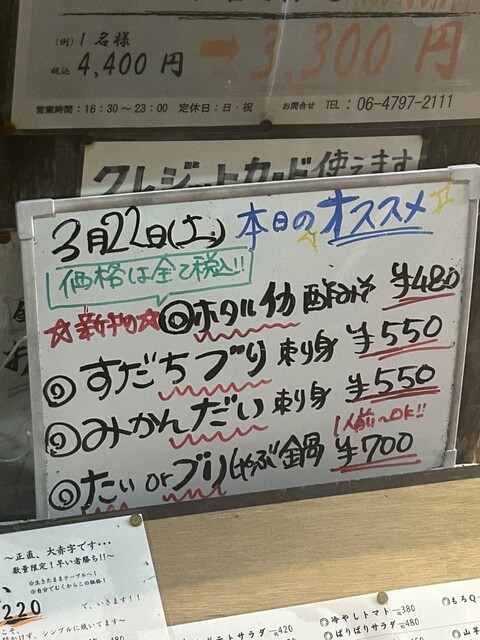 (例) 1名様
税込 4,400 円 → 3,300 円
営業時間：16:30～23:00 定休日：日・祝 お問合せ TEL：06-4797-2111
クレジットカード使えます
3月22日(土) 本日のオススメ
価格は全て税込!!
☆新物☆ ◎ホタルイカ酢みそ ¥480
◎すだちブリ刺り身 ¥550
◎みかんだい刺り身 ¥550
1人前〜OK!!
◎たい or ブリしゃぶ鍋 ¥700
～正直、大赤字です…
数量限定！早い者勝ち!!～
220
で、いきます!!
シンプルに焼いてます～
ポテトサラダ 420
◎冷やしトマト 380
◎ぱりぱりサラダ 480
◎もろQ